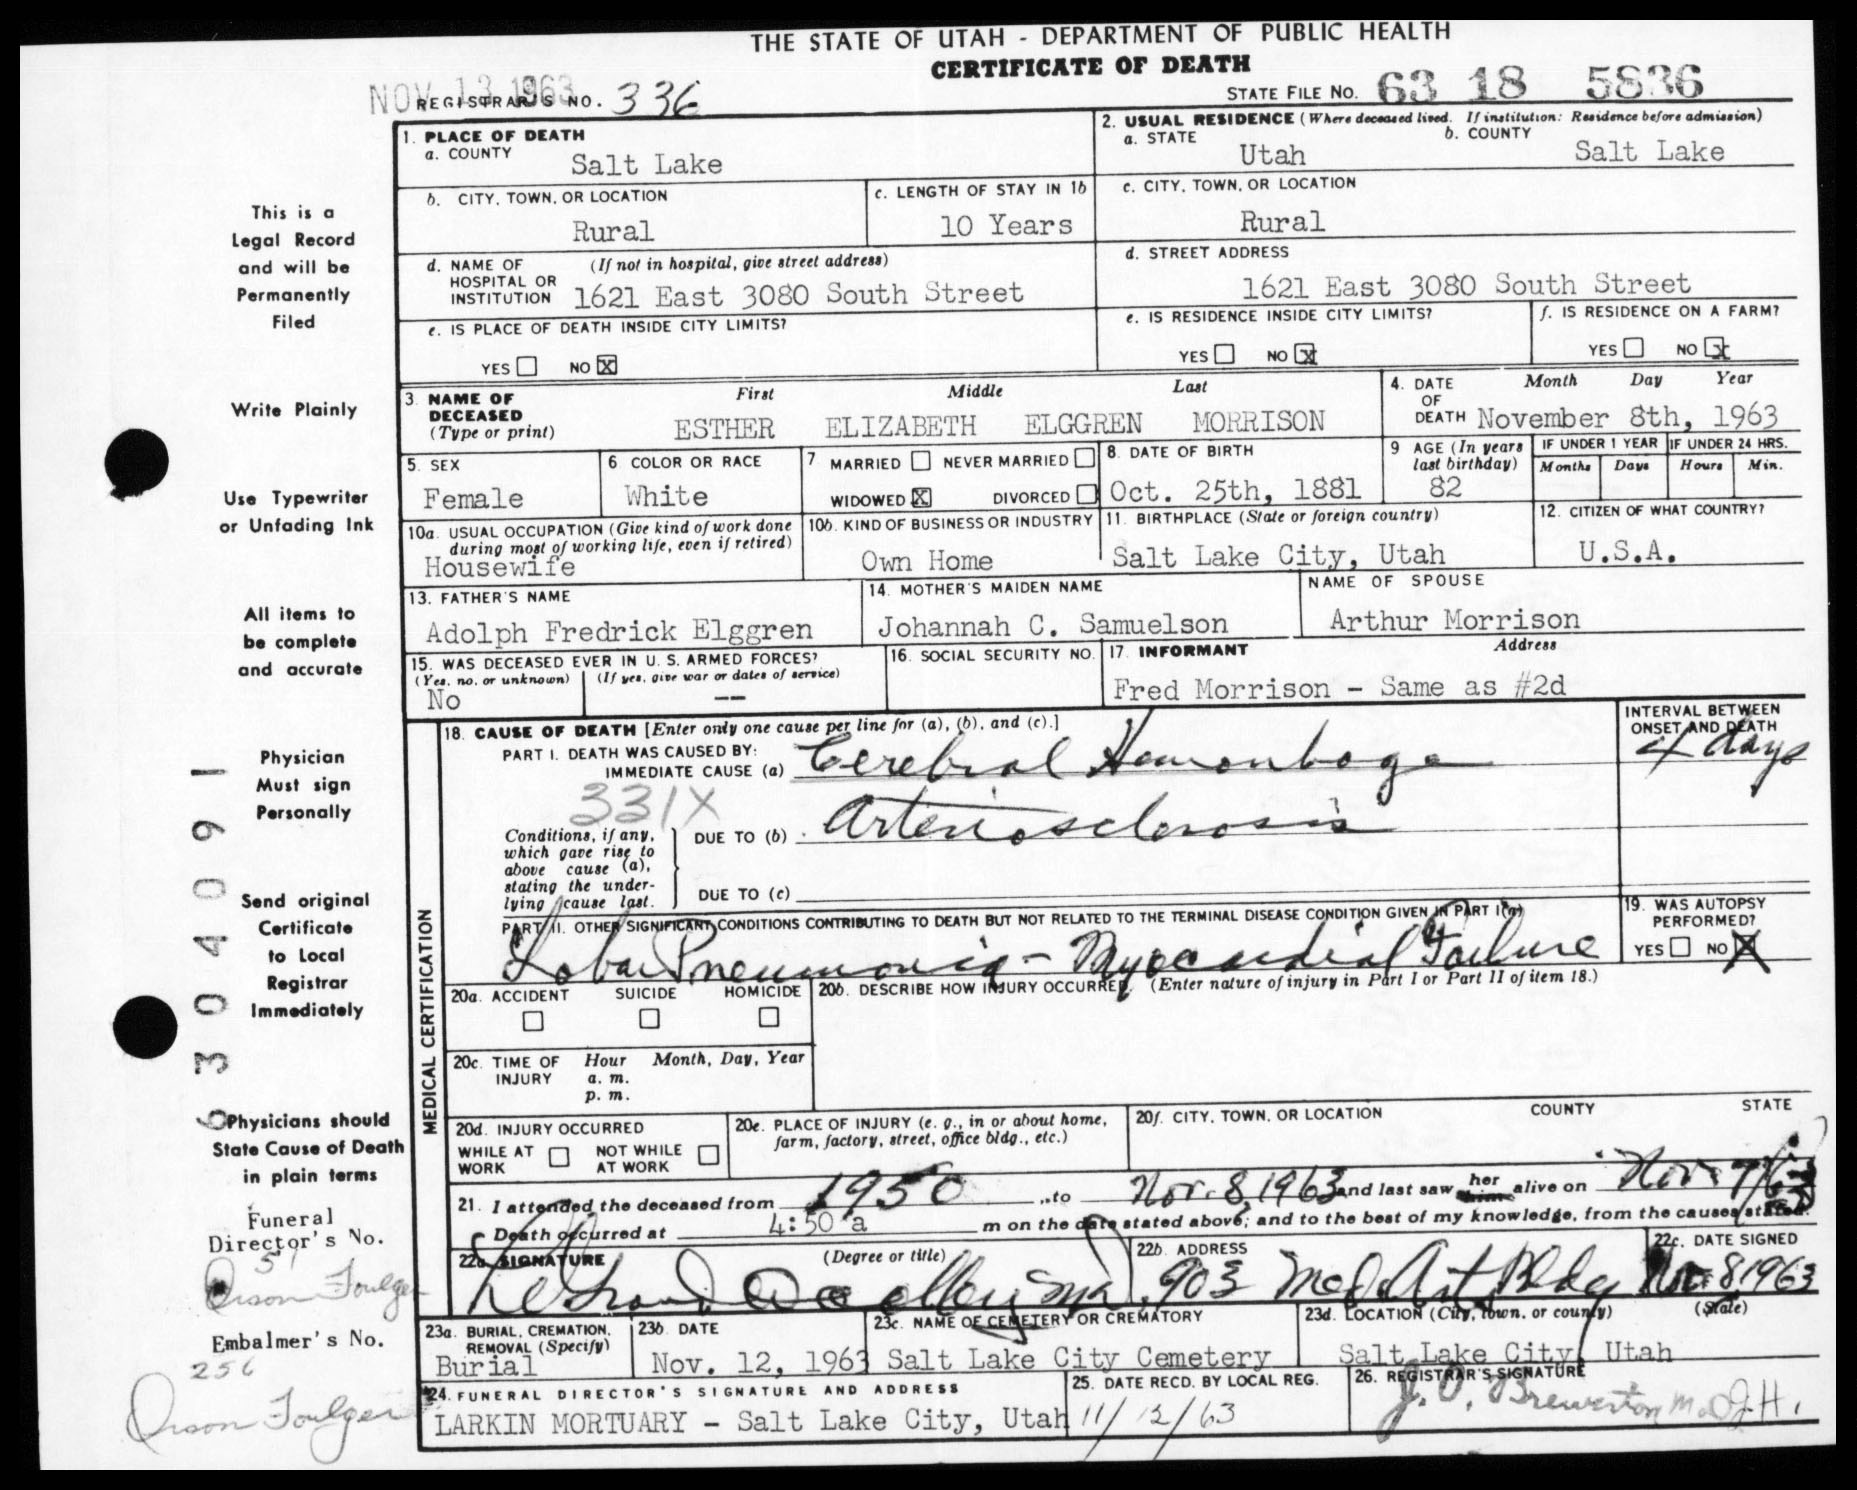 THE STATE OF UTAH - DEPARTMENT OF PUBLIC HEALTH
CERTIFICATE OF DEATH
NOV 13 1963
REGISTRAR'S NO. 336
STATE FILE NO. 63 18 5836
1. PLACE OF DEATH
a. COUNTY
Salt Lake
2. USUAL RESIDENCE (Where deceased lived. If institution: Residence before admission)
a. STATE
Utah
b. COUNTY
Salt Lake
b. CITY, TOWN, OR LOCATION
Rural
c. LENGTH OF STAY IN 1b
10 Years
c. CITY, TOWN, OR LOCATION
Rural
d. NAME OF HOSPITAL OR INSTITUTION
(If not in hospital, give street address)
1621 East 3080 South Street
d. STREET ADDRESS
1621 East 3080 South Street
e. IS PLACE OF DEATH INSIDE CITY LIMITS?
YES NO X
e. IS RESIDENCE INSIDE CITY LIMITS?
YES NO X
f. IS RESIDENCE ON A FARM?
YES NO X
3. NAME OF DECEASED
(Type or print)
First Middle Last
ESTHER ELIZABETH ELGGREN MORRISON
4. DATE OF DEATH
Month Day Year
November 8th, 1963
5. SEX
Female
6 COLOR OR RACE
White
7 MARRIED NEVER MARRIED
WIDOWED X DIVORCED
8. DATE OF BIRTH
Oct. 25th, 1881
9 AGE (In years last birthday)
82
IF UNDER 1 YEAR
Months Days
IF UNDER 24 HRS.
Hours Min.
10a. USUAL OCCUPATION (Give kind of work done during most of working life, even if retired)
Housewife
10b. KIND OF BUSINESS OR INDUSTRY
Own Home
11. BIRTHPLACE (State or foreign country)
Salt Lake City, Utah
12. CITIZEN OF WHAT COUNTRY?
U.S.A.
13. FATHER'S NAME
Adolph Fredrick Elggren
14. MOTHER'S MAIDEN NAME
Johannah C. Samuelson
NAME OF SPOUSE
Arthur Morrison
15. WAS DECEASED EVER IN U. S. ARMED FORCES?
(Yes, no, or unknown) (If yes, give war or dates of service)
No --
16. SOCIAL SECURITY NO.
17. INFORMANT Address
Fred Morrison - Same as #2d
MEDICAL CERTIFICATION
18. CAUSE OF DEATH [Enter only one cause per line for (a), (b), and (c).]
PART I. DEATH WAS CAUSED BY:
IMMEDIATE CAUSE (a) Cerebral Hemorrhage
INTERVAL BETWEEN ONSET AND DEATH
4 days
331X
Conditions, if any, which gave rise to above cause (a), stating the underlying cause last.
DUE TO (b) Arteriosclerosis
DUE TO (c)
PART II. OTHER SIGNIFICANT CONDITIONS CONTRIBUTING TO DEATH BUT NOT RELATED TO THE TERMINAL DISEASE CONDITION GIVEN IN PART I(a)
Lobar Pneumonia - Myocardial Failure
19. WAS AUTOPSY PERFORMED?
YES NO X
20a. ACCIDENT SUICIDE HOMICIDE
20b. DESCRIBE HOW INJURY OCCURRED. (Enter nature of injury in Part I or Part II of item 18.)
20c. TIME OF INJURY
Hour Month, Day, Year
a. m.
p. m.
20d. INJURY OCCURRED
WHILE AT WORK NOT WHILE AT WORK
20e. PLACE OF INJURY (e. g., in or about home, farm, factory, street, office bldg., etc.)
20f. CITY, TOWN, OR LOCATION COUNTY STATE
21. I attended the deceased from 1950 to Nov. 8, 1963 and last saw her alive on Nov. 7/63
Death occurred at 4:50 a m on the date stated above; and to the best of my knowledge, from the causes stated.
22a. SIGNATURE (Degree or title)
22b. ADDRESS
903 Med Art Bldg
22c. DATE SIGNED
Nov. 8 1963
23a. BURIAL, CREMATION, REMOVAL (Specify)
Burial
23b. DATE
Nov. 12, 1963
23c. NAME OF CEMETERY OR CREMATORY
Salt Lake City Cemetery
23d. LOCATION (City, town, or county) (State)
Salt Lake City, Utah
24. FUNERAL DIRECTOR'S SIGNATURE AND ADDRESS
LARKIN MORTUARY - Salt Lake City, Utah
25. DATE RECD. BY LOCAL REG.
11/12/63
26. REGISTRAR'S SIGNATURE
J. D. Brewerton M.D.
This is a
Legal Record
and will be
Permanently
Filed
Write Plainly
Use Typewriter
or Unfading Ink
All items to
be complete
and accurate
Physician
Must sign
Personally
Send original
Certificate
to Local
Registrar
Immediately
Physicians should
State Cause of Death
in plain terms
Funeral
Director's No.
51
Orson Foulger
Embalmer's No.
256
Orson Foulger
6304091